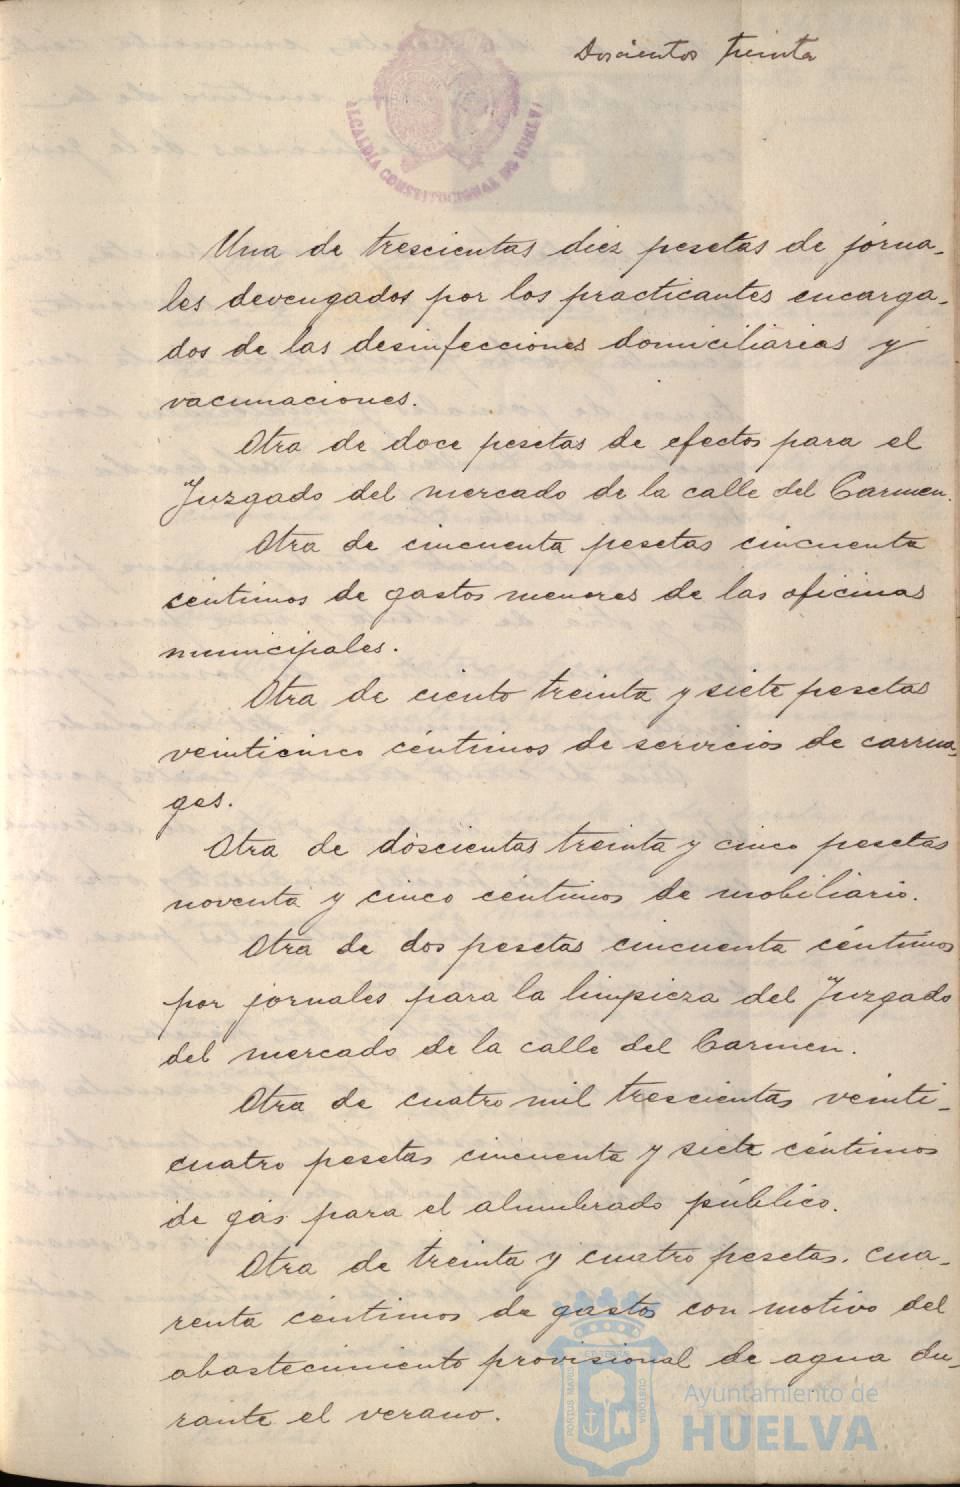 Doscientos treinta
ALCALDÍA CONSTITUCIONAL DE HUELVA
Una de trescientas diez pesetas de jorna-
les devengados por los practicantes encarga-
dos de las desinfecciones domiciliarias y
vacunaciones.
Otra de doce pesetas de efectos para el
Juzgado del mercado de la calle del Carmen.
Otra de cincuenta pesetas cincuenta
céntimos de gastos menores de las oficinas
municipales.
Otra de ciento treinta y siete pesetas
veinticinco céntimos de servicios de carrua-
ges.
Otra de doscientas treinta y cinco pesetas
noventa y cinco céntimos de mobiliario.
Otra de dos pesetas cincuenta céntimos
por jornales para la limpieza del Juzgado
del mercado de la calle del Carmen.
Otra de cuatro mil trescientas veinti-
cuatro pesetas cincuenta y siete céntimos
de gas para el alumbrado público.
Otra de treinta y cuatro pesetas cua-
renta céntimos de gastos con motivo del
abastecimiento provisional de agua du-
rante el verano.
PORTUS MARIS
CUSTODIA
Ayuntamiento de
HUELVA